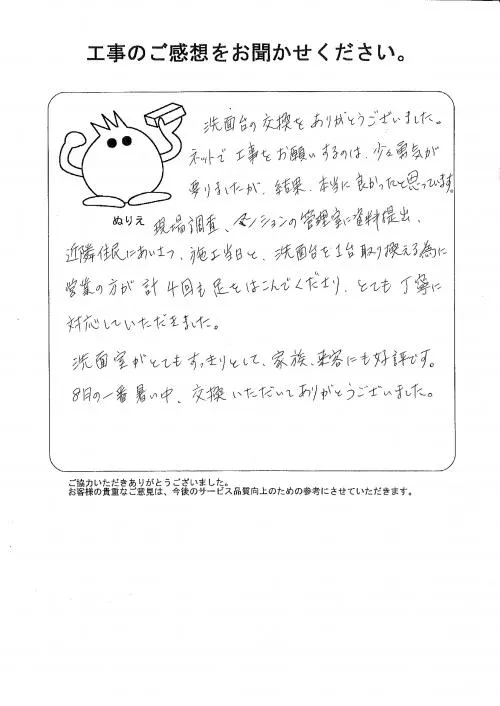 工事のご感想をお聞かせください。
洗面台の交換をありがとうございました。
ネットで工事をお願いするのは、少々勇気が
要りましたが、結果、本当に良かったと思っています。
ぬりえ
現場調査、マンションの管理室に資料提出、
近隣住民にあいさつ、施工当日と、洗面台を1台取り換える為に
営業の方が計4回も足をはこんでくださり、とても丁寧に
対応していただきました。
洗面室がとてもすっきりとして、家族、来客にも好評です。
8月の一番暑い中、交換いただいてありがとうございました。
ご協力いただきありがとうございました。
お客様の貴重なご意見は、今後のサービス品質向上のための参考にさせていただきます。